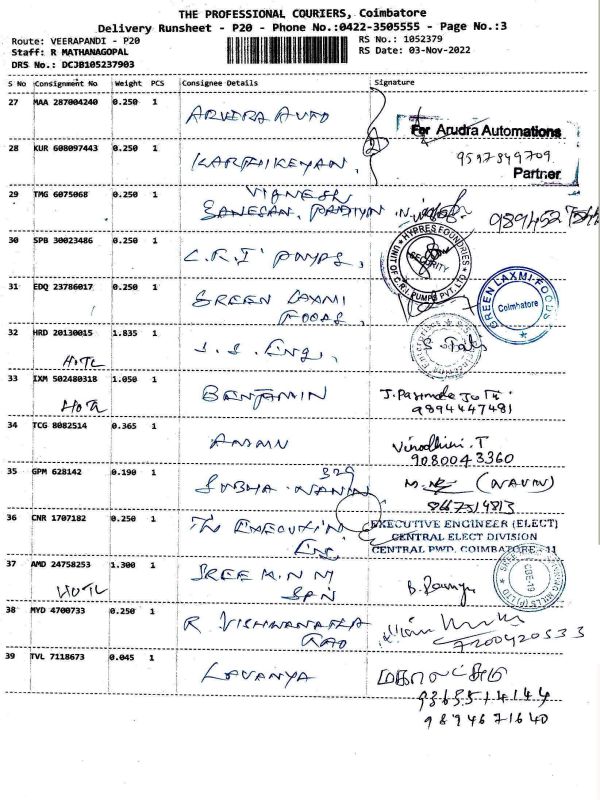 THE PROFESSIONAL COURIERS, Coimbatore
Delivery Runsheet - P20 - Phone No.:0422-3505555 - Page No.:3
Route: VEERAPANDI - P20
Staff: R MATHANAGOPAL
DRS No.: DCJB105237903
RS No.: 1052379
RS Date: 03-Nov-2022
S No Consignment No Weight PCS Consignee Details Signature
27 MAA 287004240 0.250 1
For Arudra Automations
28 KUR 608097443 0.250 1 KARTHIKEYAN
9597349709
Partner
29 TMG 6075068 0.250 1 VIGNESH
30 SPB 30023486 0.250 1 C.R.I PUMPS
HYPRES FOUNDRIES
SECURITY
UNIT OF C.R.I. PUMPS PVT. LTD
31 EDQ 23786017 0.250 1 GREEN LAXMI
FOODS
GREEN LAXMI FOODS
Coimbatore
32 HRD 20130015 1.835 1
HOTL
33 IXM 502480318 1.050 1 BENJAMIN
HOTL
9894447481
34 TCG 8082514 0.365 1 Vinodhini. T
9080043360
35 GPM 628142 0.190 1 (NAVIN)
36 CNR 1707182 0.250 1 The EXECUTIVE
Eng
EXECUTIVE ENGINEER (ELECT)
CENTRAL ELECT DIVISION
CENTRAL PWD, COIMBATORE - 11
37 AMD 24758253 1.300 1 SREE
HOTL
38 MYD 4700733 0.250 1 R. VISHWANATHA
RAO
7200420533
39 TVL 7118673 0.045 1 LAVANYA
9894671640